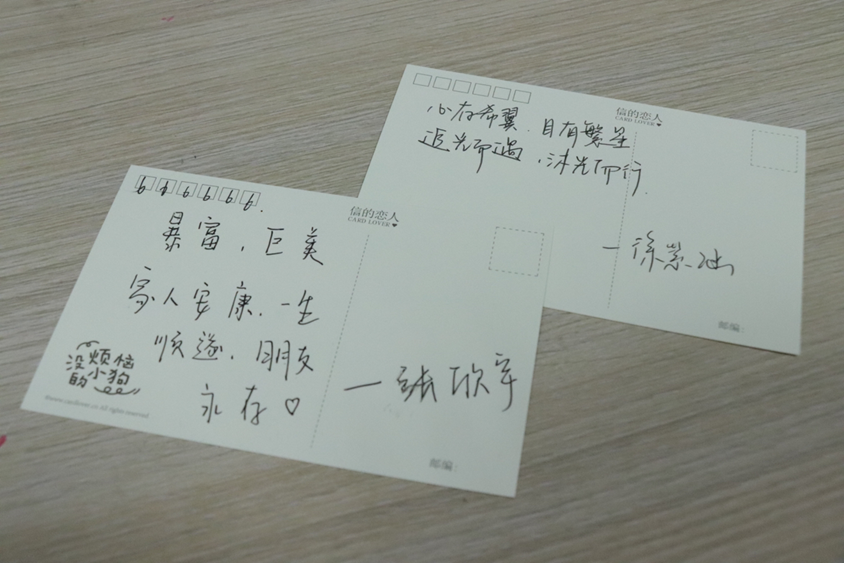 信的恋人
CARD LOVER
心存希翼，目有繁星
追光而遇，沐光而行.
邮编:
666666.
信的恋人
CARD LOVER
暴富，巨美
家人安康，一生
顺遂，朋友
永存♡
一张欣宇
没烦恼
的小狗
邮编: